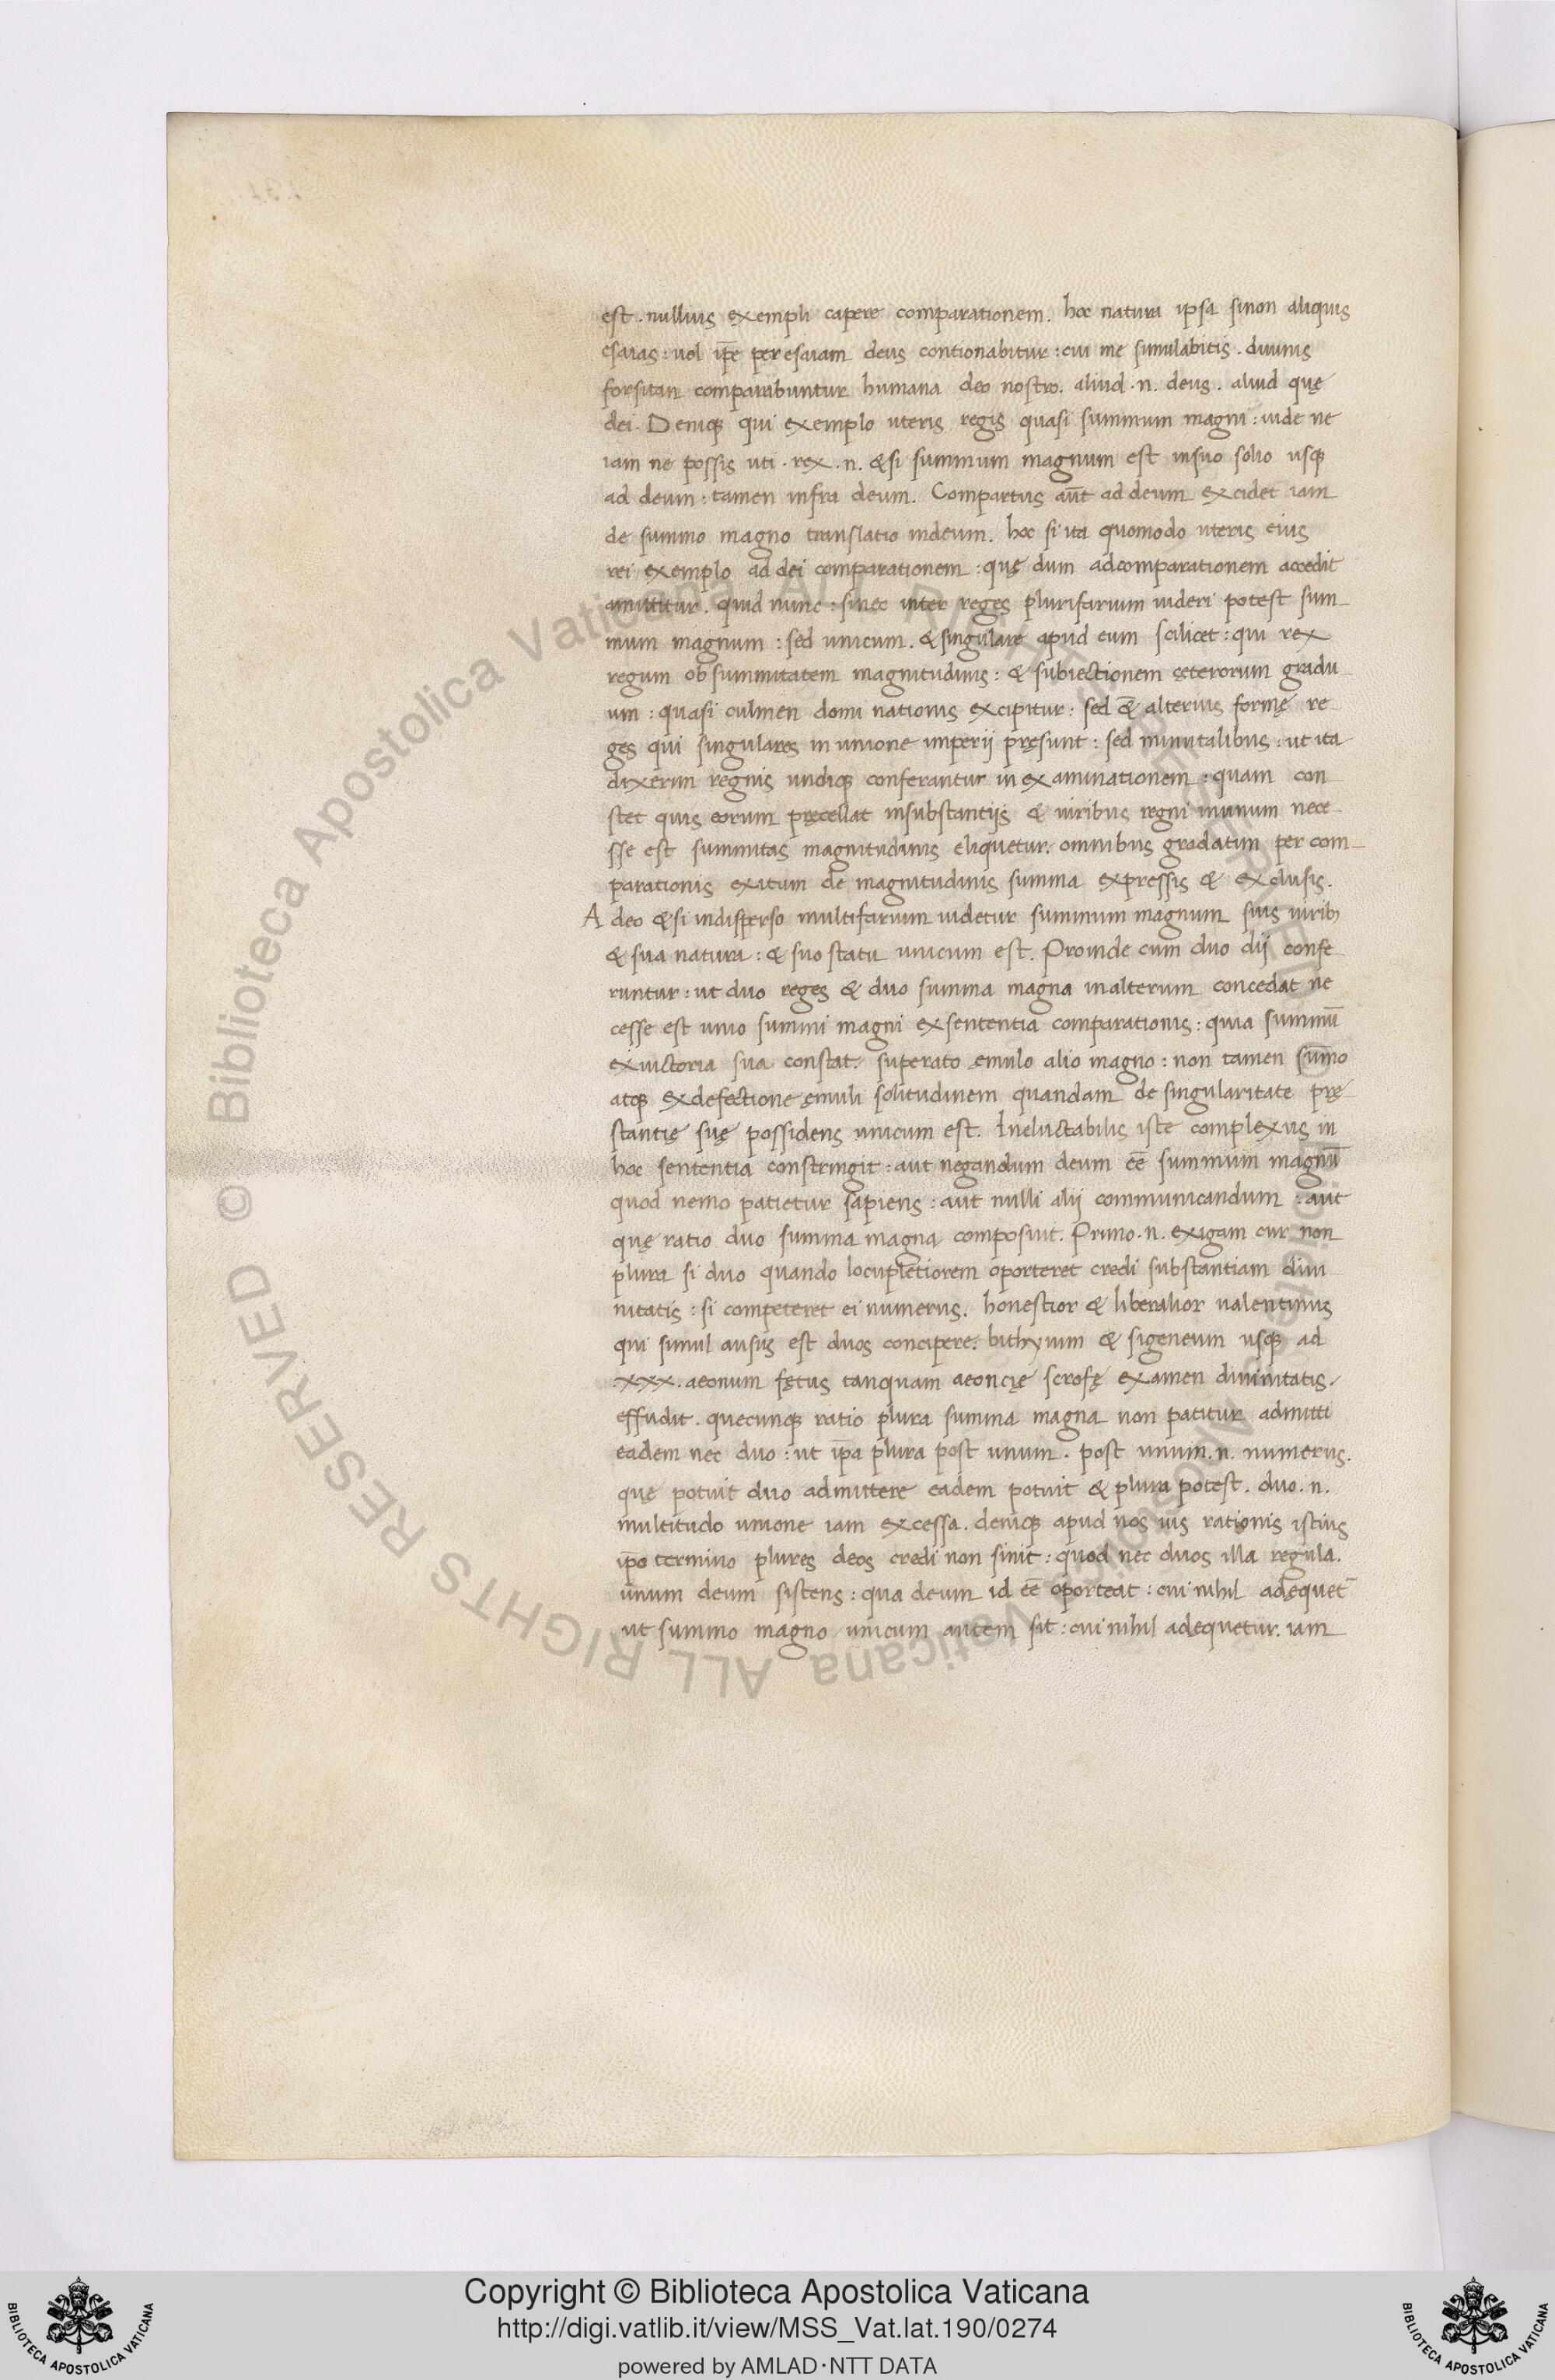 est. nullius exempli capere comparationem. hoc natura ipsa sinon aliquis
esaias: uel ip̄e per esaiam deus contionabitur: cui me simulabitis. diuinis
forsitan comparabuntur humana deo nostro. aliud .n. deus. aliud quę
dei. Deniqꝫ qui exemplo uteris regis quasi summum magni: uide ne
iam ne possis uti. rex .n. & si summum magnum est insuo solio usqꝫ
ad deum: tamen infra deum. Compartus aūt ad deum excidet iam
de summo magno translatio indeum. hoc si ita quomodo uteris eius
rei exemplo ad dei comparationem: quę dum adcomparationem accedit
amittitur. quid nunc: sinec inter reges plurifarium uideri potest sum
mum magnum: sed unicum. & singulare apud eum scilicet: qui rex
regum ob summitatem magnitudinis: & subiectionem ceterorum gradu
um: quasi culmen domi nationis excipitur: sed &̄ alterius formę re
ges qui singulares in unione imperij pręsunt: sed minutalibus: ut ita
dixerim regnis undiqꝫ conferantur in examinationem: quam con
stet quis eorum pręcellat insubstantijs & uiribus regni in unum nece
sse est summitas magnitudinis eliquetur. omnibus gradatim per com
parationis exitum de magnitudinis summa expressis & exclusis.
A deo & si indisperso multifarium uidetur summum magnum suis uiribꝫ
& sua natura: & suo statu unicum est. Proinde cum duo dij confe
runtur: ut duo reges & duo summa magna inalterum concedat ne
cesse est unio summi magni ex sententia comparationis: quia summū
exuictoria sua constat. superato ęmulo alio magno: non tamen sūmo
atqꝫ exdefectione ęmuli solitudinem quandam de singularitate prę
stantię suę possidens unicum est. Ineluctabilis iste complexus in
hoc sententia constringit: aut negandum deum eē summum magnū
quod nemo patietur sapiens: aut nulli alij communicandum: aut
quę ratio duo summa magna composuit. Primo .n. exigam cur non
plura si duo quando locupletiorem oporteret credi substantiam diui
nitatis: si competeret ei numerus. honestior & liberalior ualentinus
qui simul ausus est duos concipere. bithyum & sigeneum usqꝫ ad
.xxx. aeonum fętus tanquam aeoncię scrofę examen diuinitatis.
effudit. quecunqꝫ ratio plura summa magna non patitur admitti
eadem nec duo: ut ip̄a plura post unum. post unum .n. numerus.
quę potuit duo admittere eadem potuit & plura potest. duo .n.
multitudo unione iam excessa. deniqꝫ apud nos uis rationis istius
ip̄o termino plures deos credi non sinit: quod nec duos illa regula.
unum deum sistens: qua deum id eē oporteat: cui nihil adęquet̄
ut summo magno unicum autem sit: cui nihil adequetur. iam
© Biblioteca Apostolica Vaticana ALL RIGHTS RESERVED
© Biblioteca Apostolica Vaticana ALL RIGHTS RESERVED
Copyright © Biblioteca Apostolica Vaticana
http://digi.vatlib.it/view/MSS_Vat.lat.190/0274
powered by AMLAD·NTT DATA
BIBLIOTECA APOSTOLICA VATICANA
BIBLIOTECA APOSTOLICA VATICANA